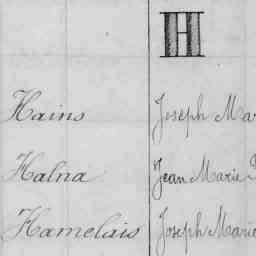 H
Hains Joseph Mar
Halna Jean Marie
Hamelais Joseph Marie